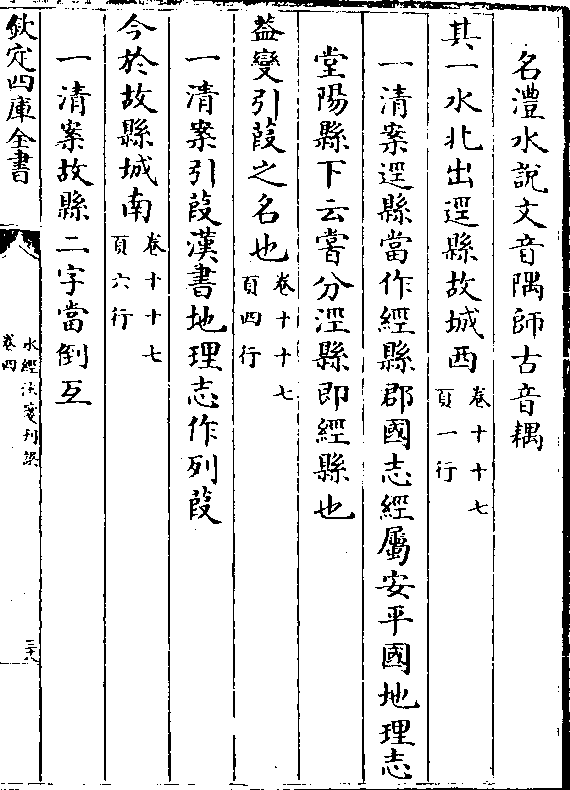 名澧水說文音隅師古音耦
其一水北出逕縣故城西卷十十七頁一行
一清案逕縣當作經縣郡國志經屬安平國地理志
堂陽縣下云嘗分涇縣即經縣也
葢變引葭之名也卷十十七頁四行
一清案引葭漢書地理志作列葭
今於故縣城南卷十十七頁六行
一清案故縣二字當倒互
欽定四庫全書
水經注箋刊誤
卷四
三十八